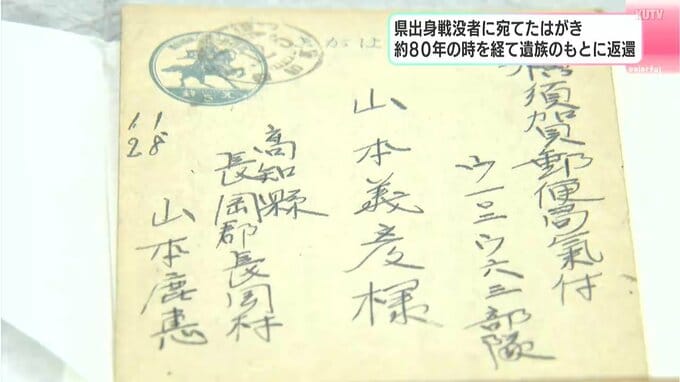 KUTV
県出身戦没者に宛てたはがき
約80年の時を経て遺族のもとに返還
colorful
横須賀郵便局氣付
ウ一〇三ウ六三部隊
山本義彦様
高知縣
長岡郡長岡村
山本鹿恵
11/28
きがは